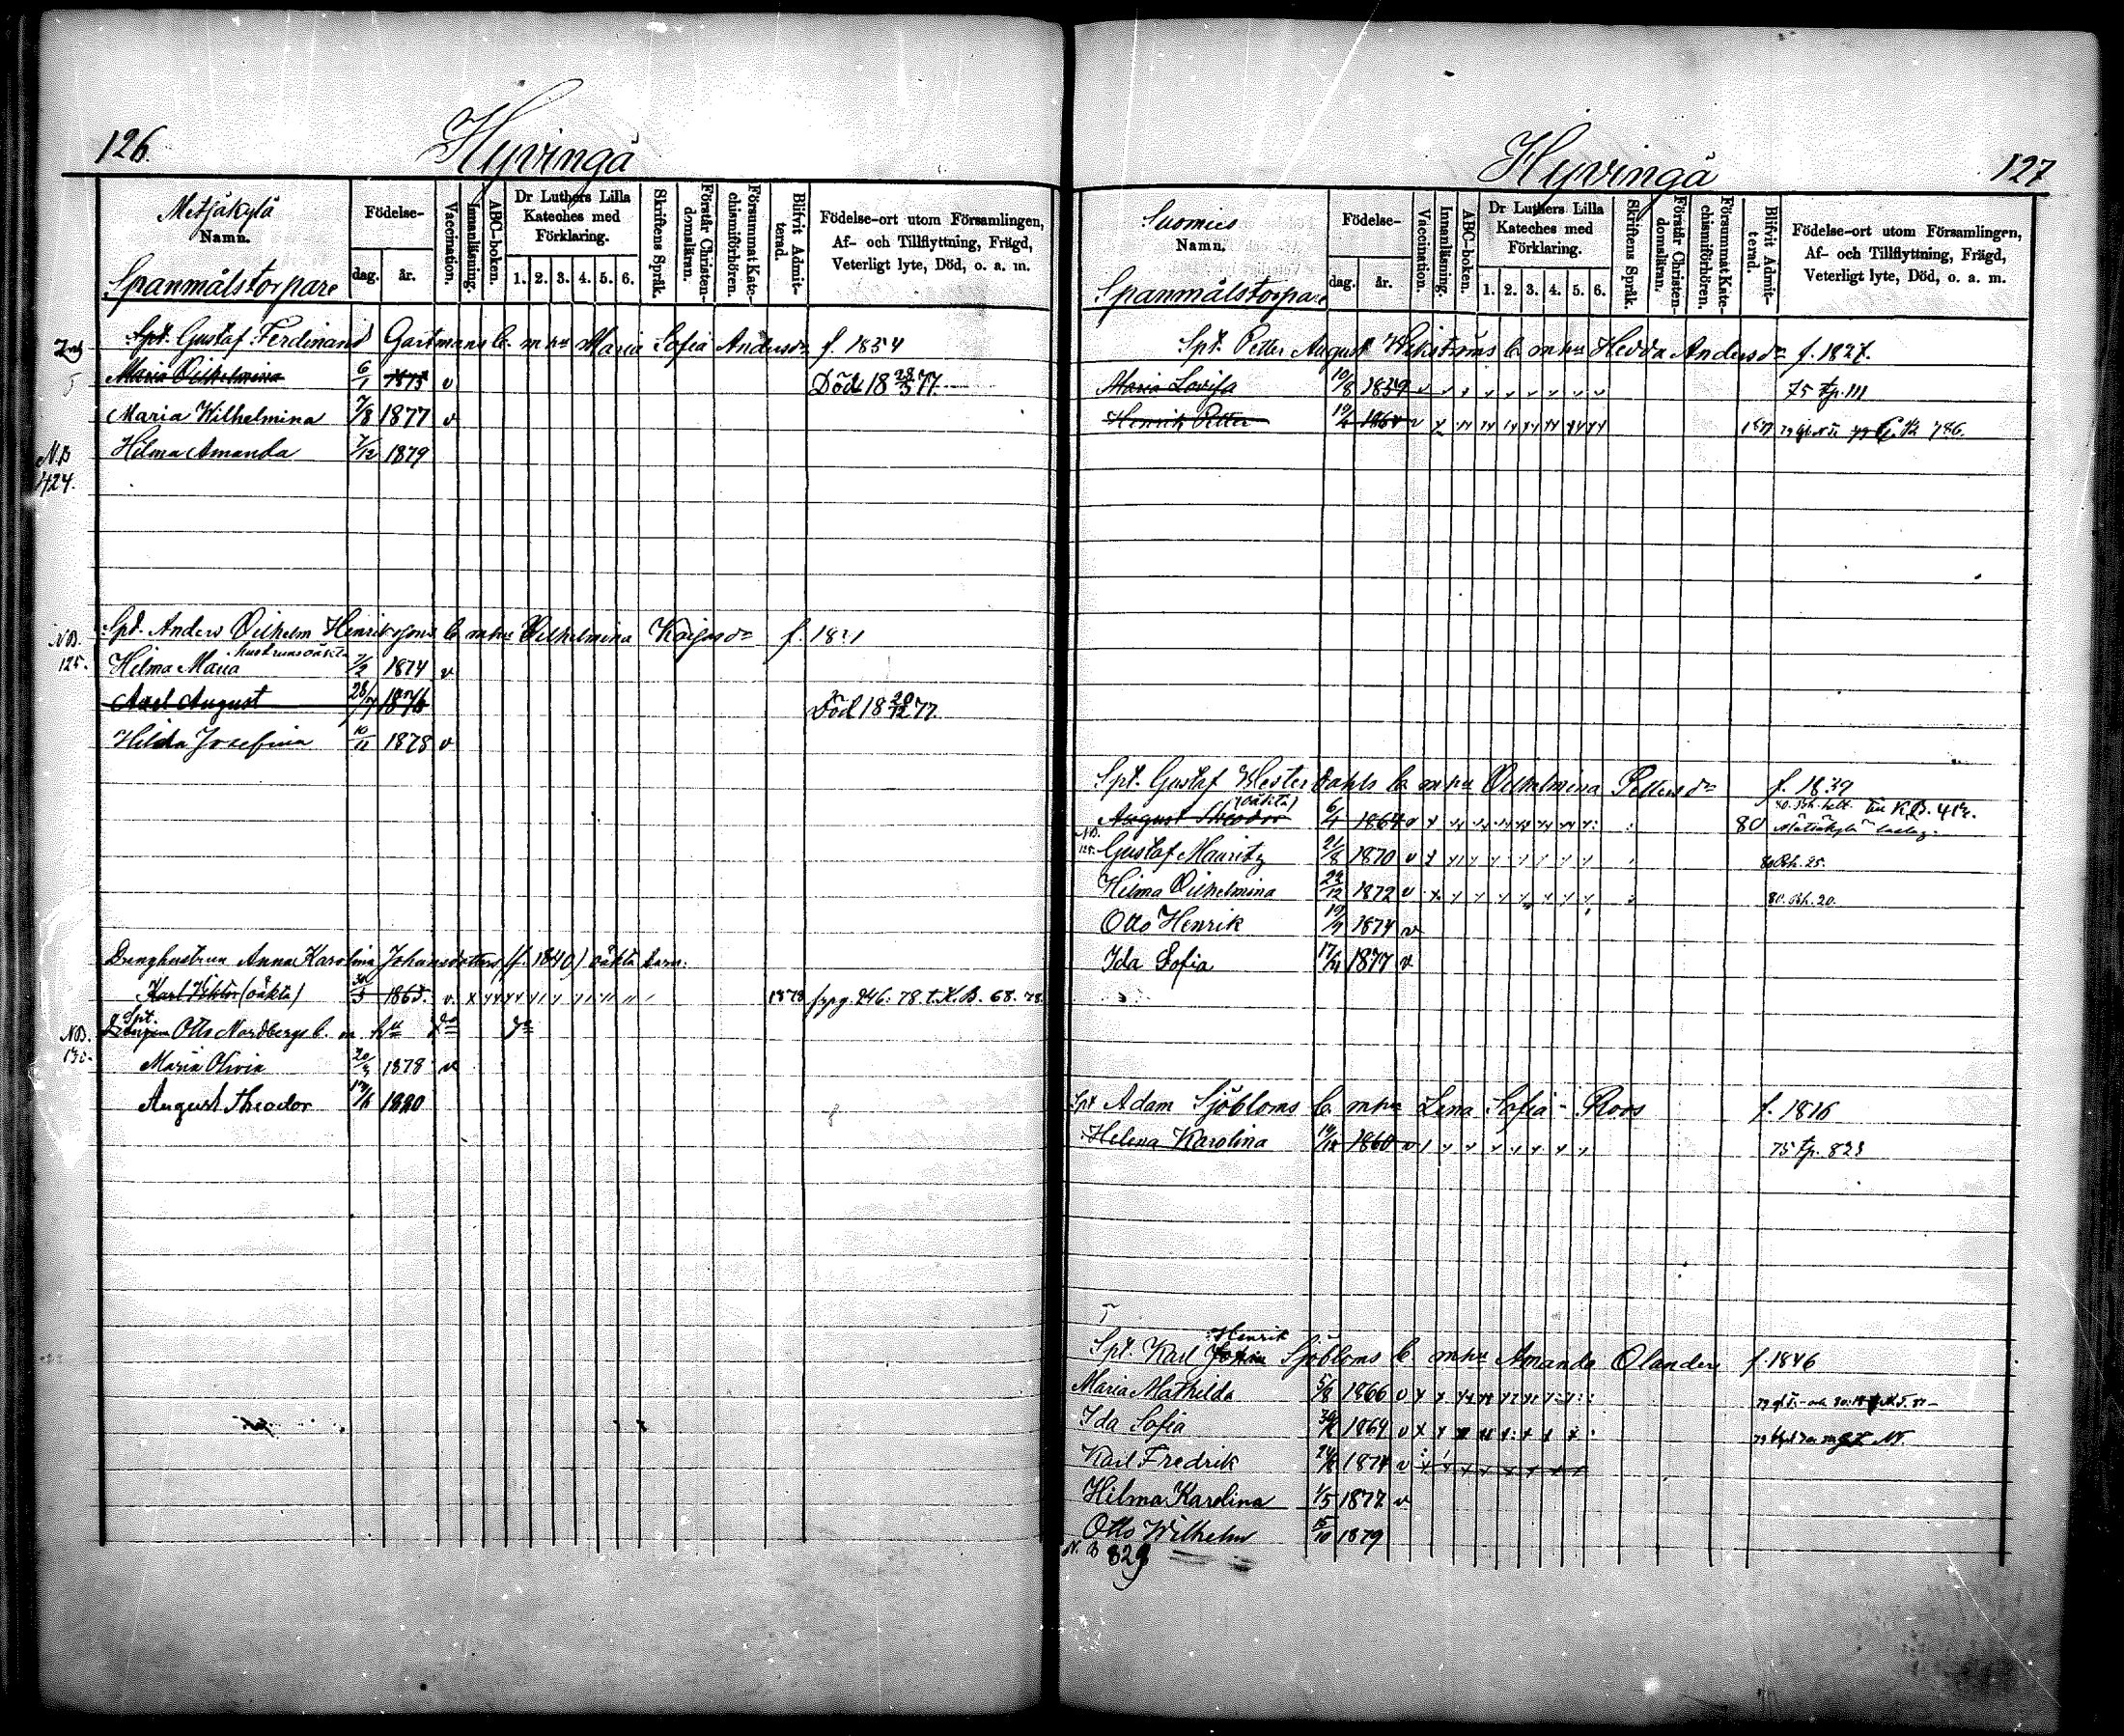 126.
Hyvingä
Metsäkylä
Namn.
Spanmålstorpare
Födelse-
dag.
år.
Vaccination.
Innanläsning.
ABC-boken.
Dr Luthers Lilla
Kateches med
Förklaring.
1. 2. 3. 4. 5. 6.
Skriftens Språk.
Förstår Christen-
domsläran.
Försummat Kate-
chismiförhören.
Blifvit Admit-
terad.
Födelse-ort utom Församlingen,
Af- och Tillflyttning, Frägd,
Veterligt lyte, Död, o. a. m.
Spt. Gustaf Ferdinand Gartmans b. m hu Maria Sofia Andersdr f. 1854
Maria Vilhelmina 6/1 1875 v Död 18 28/3 77.
Maria Wilhelmina 7/8 1877 v
N.B
424.
Hilma Amanda 7/12 1879
N.B.
125.
Spt. Anders Vilhelm Henrikssons b. m hu Vilhelmina Kajsadr f.
Hilma Maria 7/2 1874 v
Axel August 28/7 1876 Död 18 20/12 77
Hilda Josefina 10/11 1878 v
Dränghustrun Anna Karolina Johansdotters (f. 1840) oäkta barn:
Karl Viktor (oäkta) 1865. v 1878 246: 78. t. K. B. 68. 78.
N.B.
Spt.
Drängen Otto Nordbergs b. m. hu do do
Maria Olivia 1878 v
August Theodor 1880
127
Hyvingä
Suomies
Namn.
Spanmålstorpare
Födelse-
dag.
år.
Vaccination.
Innanläsning.
ABC-boken.
Dr Luthers Lilla
Kateches med
Förklaring.
1. 2. 3. 4. 5. 6.
Skriftens Språk.
Förstår Christen-
domsläran.
Försummat Kate-
chismiförhören.
Blifvit Admit-
terad.
Födelse-ort utom Församlingen,
Af- och Tillflyttning, Frägd,
Veterligt lyte, Död, o. a. m.
Spt. Petter August Wikströms b m hu Hedda Andersdr f. 1827.
Maria Lovisa 10/8 1859 v 75 fp. 111
Henrik Petter v 786.
Spt. Gustaf Westerdahls b. m hu Vilhelmina Pettersdr f. 1839
(oäkta)
August Theodor 6/4 1864 v 80
N.B.
125.
Gustaf Mauritz 21/8 1870 v 25.
Hilma Vilhelmina 1872 v 20.
Otto Henrik 1874 v
Ida Sofia 1877 v
Spt Adam Sjöbloms b. m hu Lena Sofia Roos f. 1816
Helena Karolina 1860 v 75 fp. 823
Henrik
Spt. Karl Sjöbloms b m hu Amanda Olander f. 1846
Maria Mathilda 5/8 1866 v
Ida Sofia 1869 v
Karl Fredrik 1874 v
Hilma Karolina 1/5 1877 v
Otto Wilhelm 15/10 1879
N. B 823